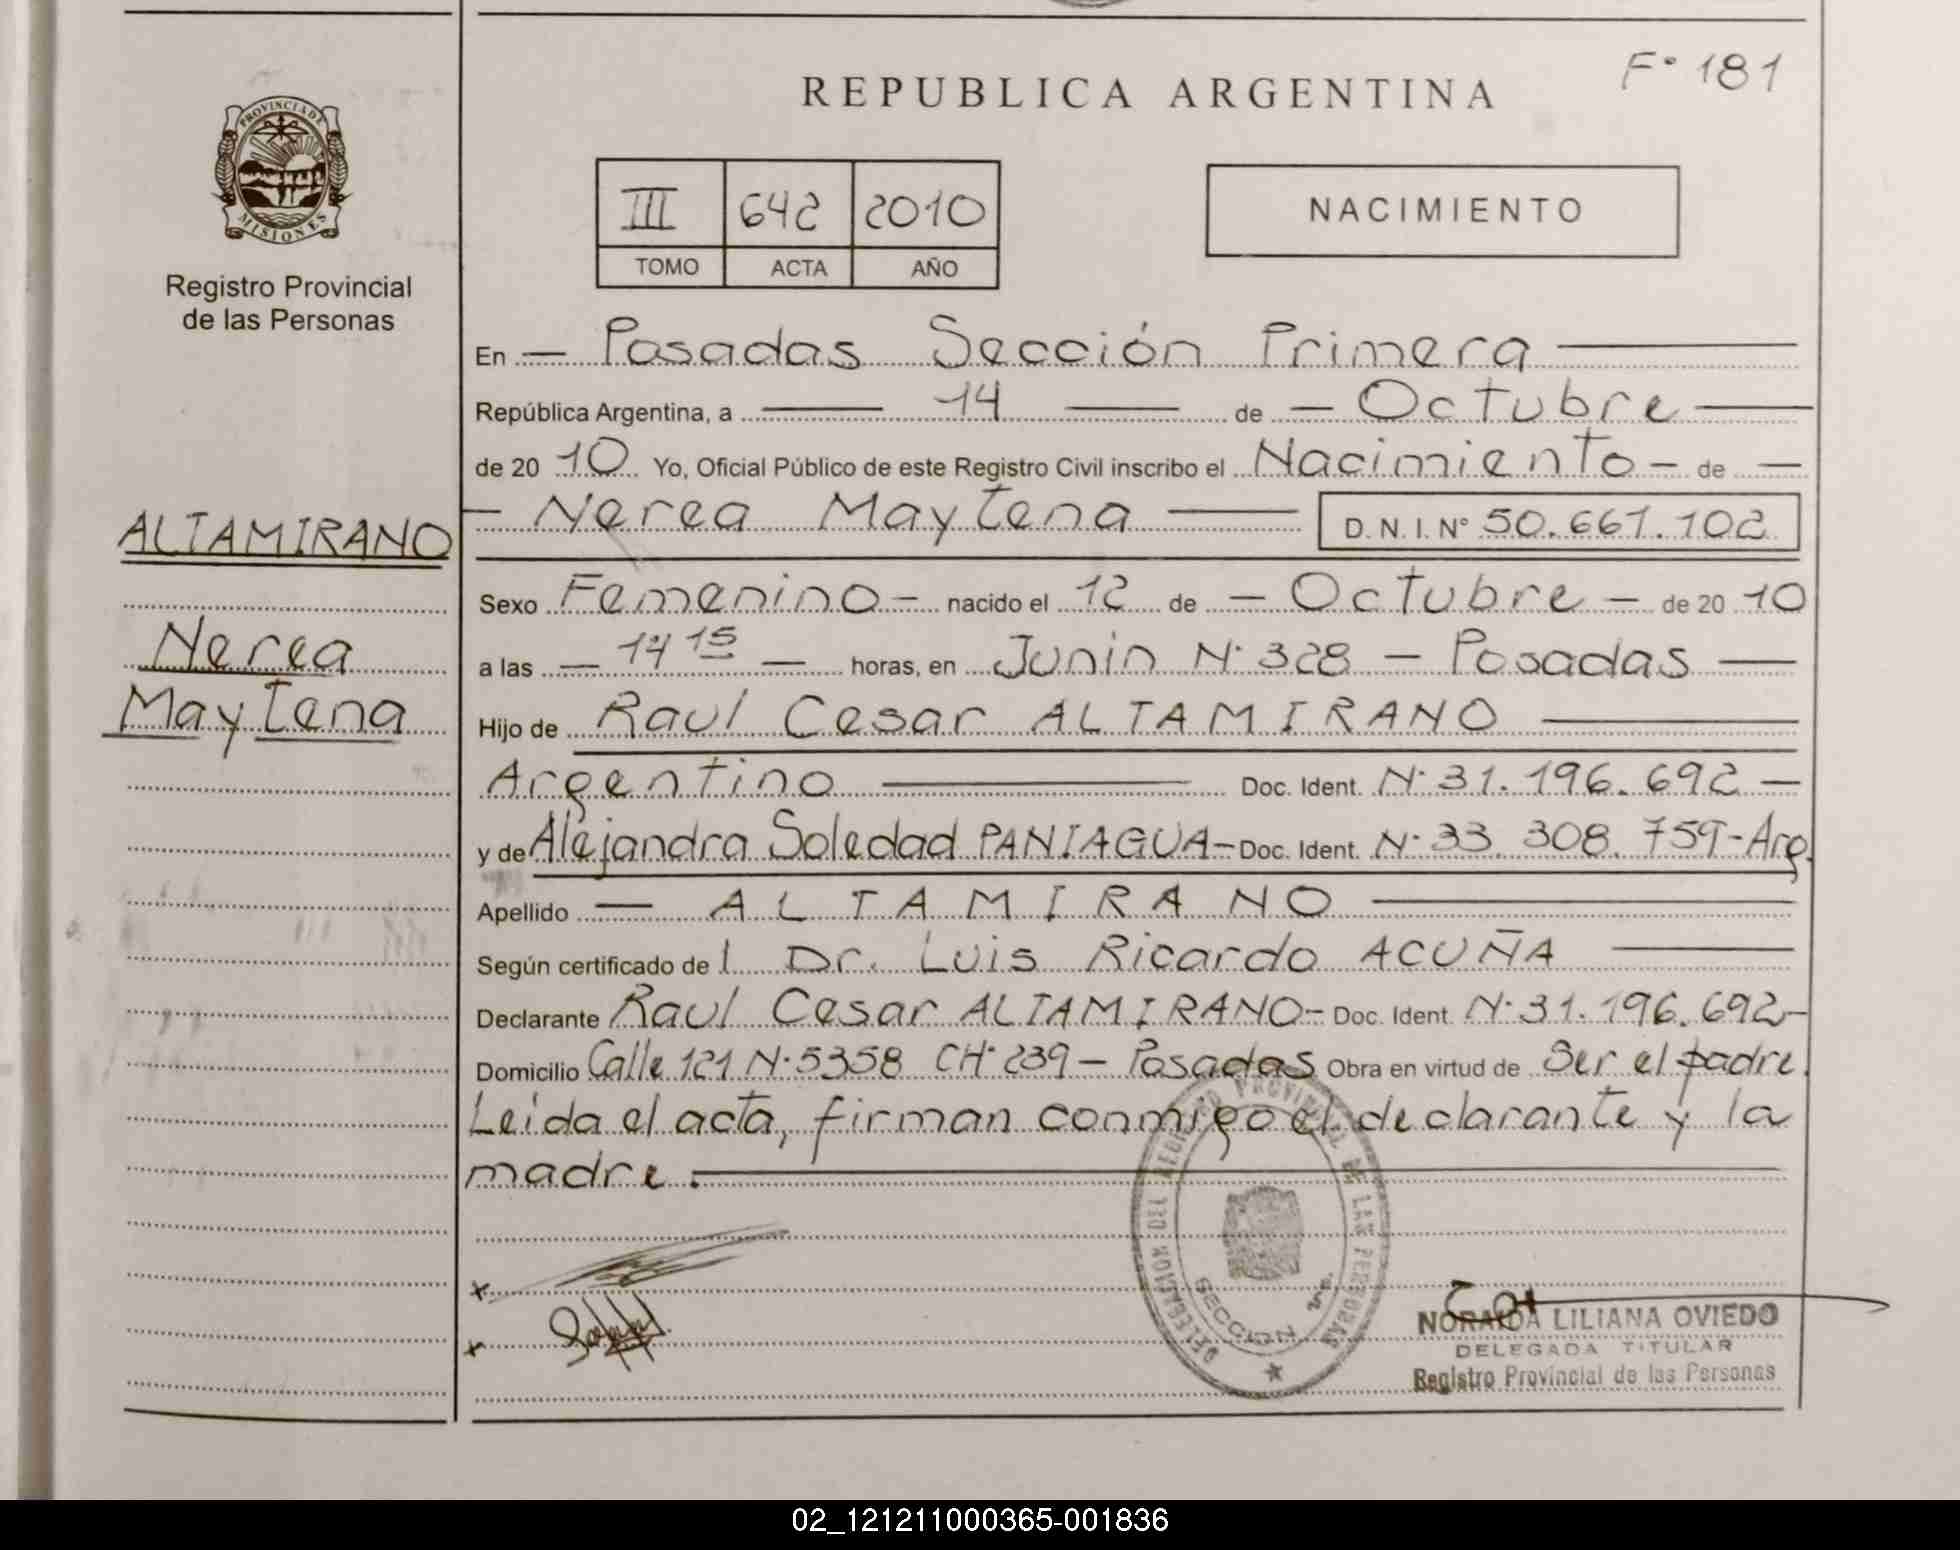 F° 181
REPUBLICA ARGENTINA
PROVINCIA DE
MISIONES
Registro Provincial
de las Personas
III 642 2010
TOMO ACTA AÑO
NACIMIENTO
En — Posadas Sección Primera —
República Argentina, a — 14 — de — Octubre —
de 20 10 Yo, Oficial Público de este Registro Civil inscribo el Nacimiento — de —
— Nerea Maytena — D.N.I. N° 50.661.102
ALTAMIRANO
Nerea
Maytena
Sexo Femenino — nacido el 12 de — Octubre — de 20 10
a las — 14 15 — horas, en Junin N° 328 — Posadas —
Hijo de Raul Cesar ALTAMIRANO —
Argentino — Doc. Ident. N° 31.196.692 —
y de Alejandra Soledad PANIAGUA — Doc. Ident. N° 33.308.759 - Arg.
Apellido — ALTAMIRANO —
Según certificado de l Dr. Luis Ricardo ACUÑA —
Declarante Raul Cesar ALTAMIRANO — Doc. Ident. N° 31.196.692 —
Domicilio Calle 121 N° 5358 CH° 239 — Posadas Obra en virtud de Ser el padre.
Leida el acta, firman conmigo el declarante y la
madre. —
DELEGACION DEL REGISTRO PROVINCIAL DE LAS PERSONAS
SECCION 1ra.
x
x
NORAIDA LILIANA OVIEDO
DELEGADA TITULAR
Registro Provincial de las Personas
02_121211000365-001836